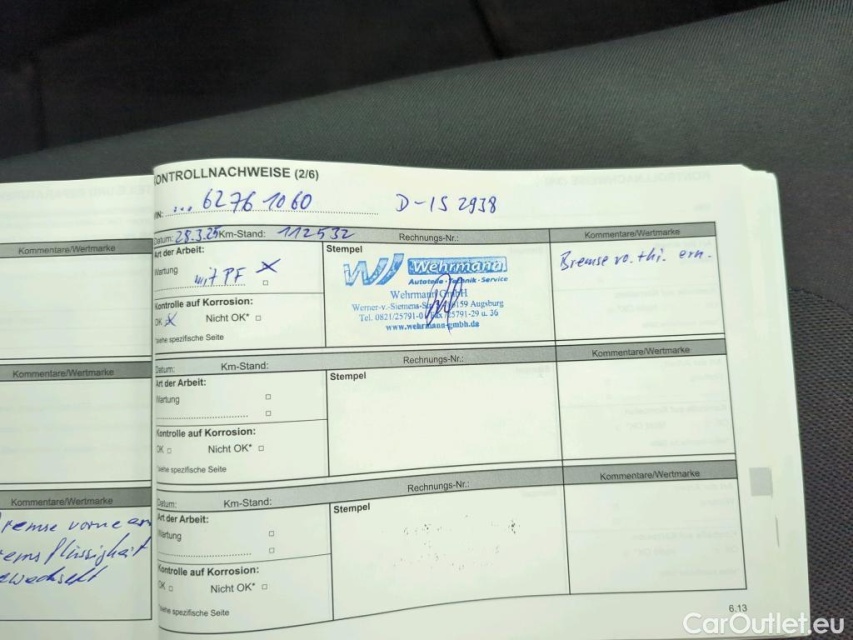 KONTROLLNACHWEISE (2/6)
...62761060 D-IS 2938
Kommentare/Wertmarke
Datum: 28.3.25 Km-Stand: 112532 Rechnungs-Nr.: Kommentare/Wertmarke
Art der Arbeit: Stempel
Wartung
mit PF
Kontrolle auf Korrosion:
OK Nicht OK*
*siehe spezifische Seite
Wehrmann
Autoteile-Technik-Service
Wehrmann GmbH
Werner-v.-Siemens-Str. 86159 Augsburg
Tel. 0821/25791-0 Fax 25791-29 u. 36
www.wehrmann-gmbh.de
Bremse vo. + hi. ern.
Kommentare/Wertmarke
Datum: Km-Stand: Rechnungs-Nr.: Kommentare/Wertmarke
Art der Arbeit: Stempel
Wartung
Kontrolle auf Korrosion:
OK Nicht OK*
*siehe spezifische Seite
Kommentare/Wertmarke
Bremse vorne
Bremsflüssigkeit
gewechselt
Datum: Km-Stand: Rechnungs-Nr.: Kommentare/Wertmarke
Art der Arbeit: Stempel
Wartung
Kontrolle auf Korrosion:
OK Nicht OK*
*siehe spezifische Seite
6.13
CarOutlet.eu